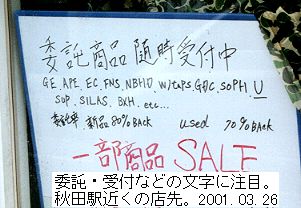 委託商品 随時受付中
GE, APE, EC, FNS, NBHD, W)taps, GDC, SOPH, U
Sup, SILAS, BXH, etc...
新品 80% BACK used 70% BACK
一部商品 SALE
委託・受付などの文字に注目。
秋田駅近くの店先。2001. 03. 26